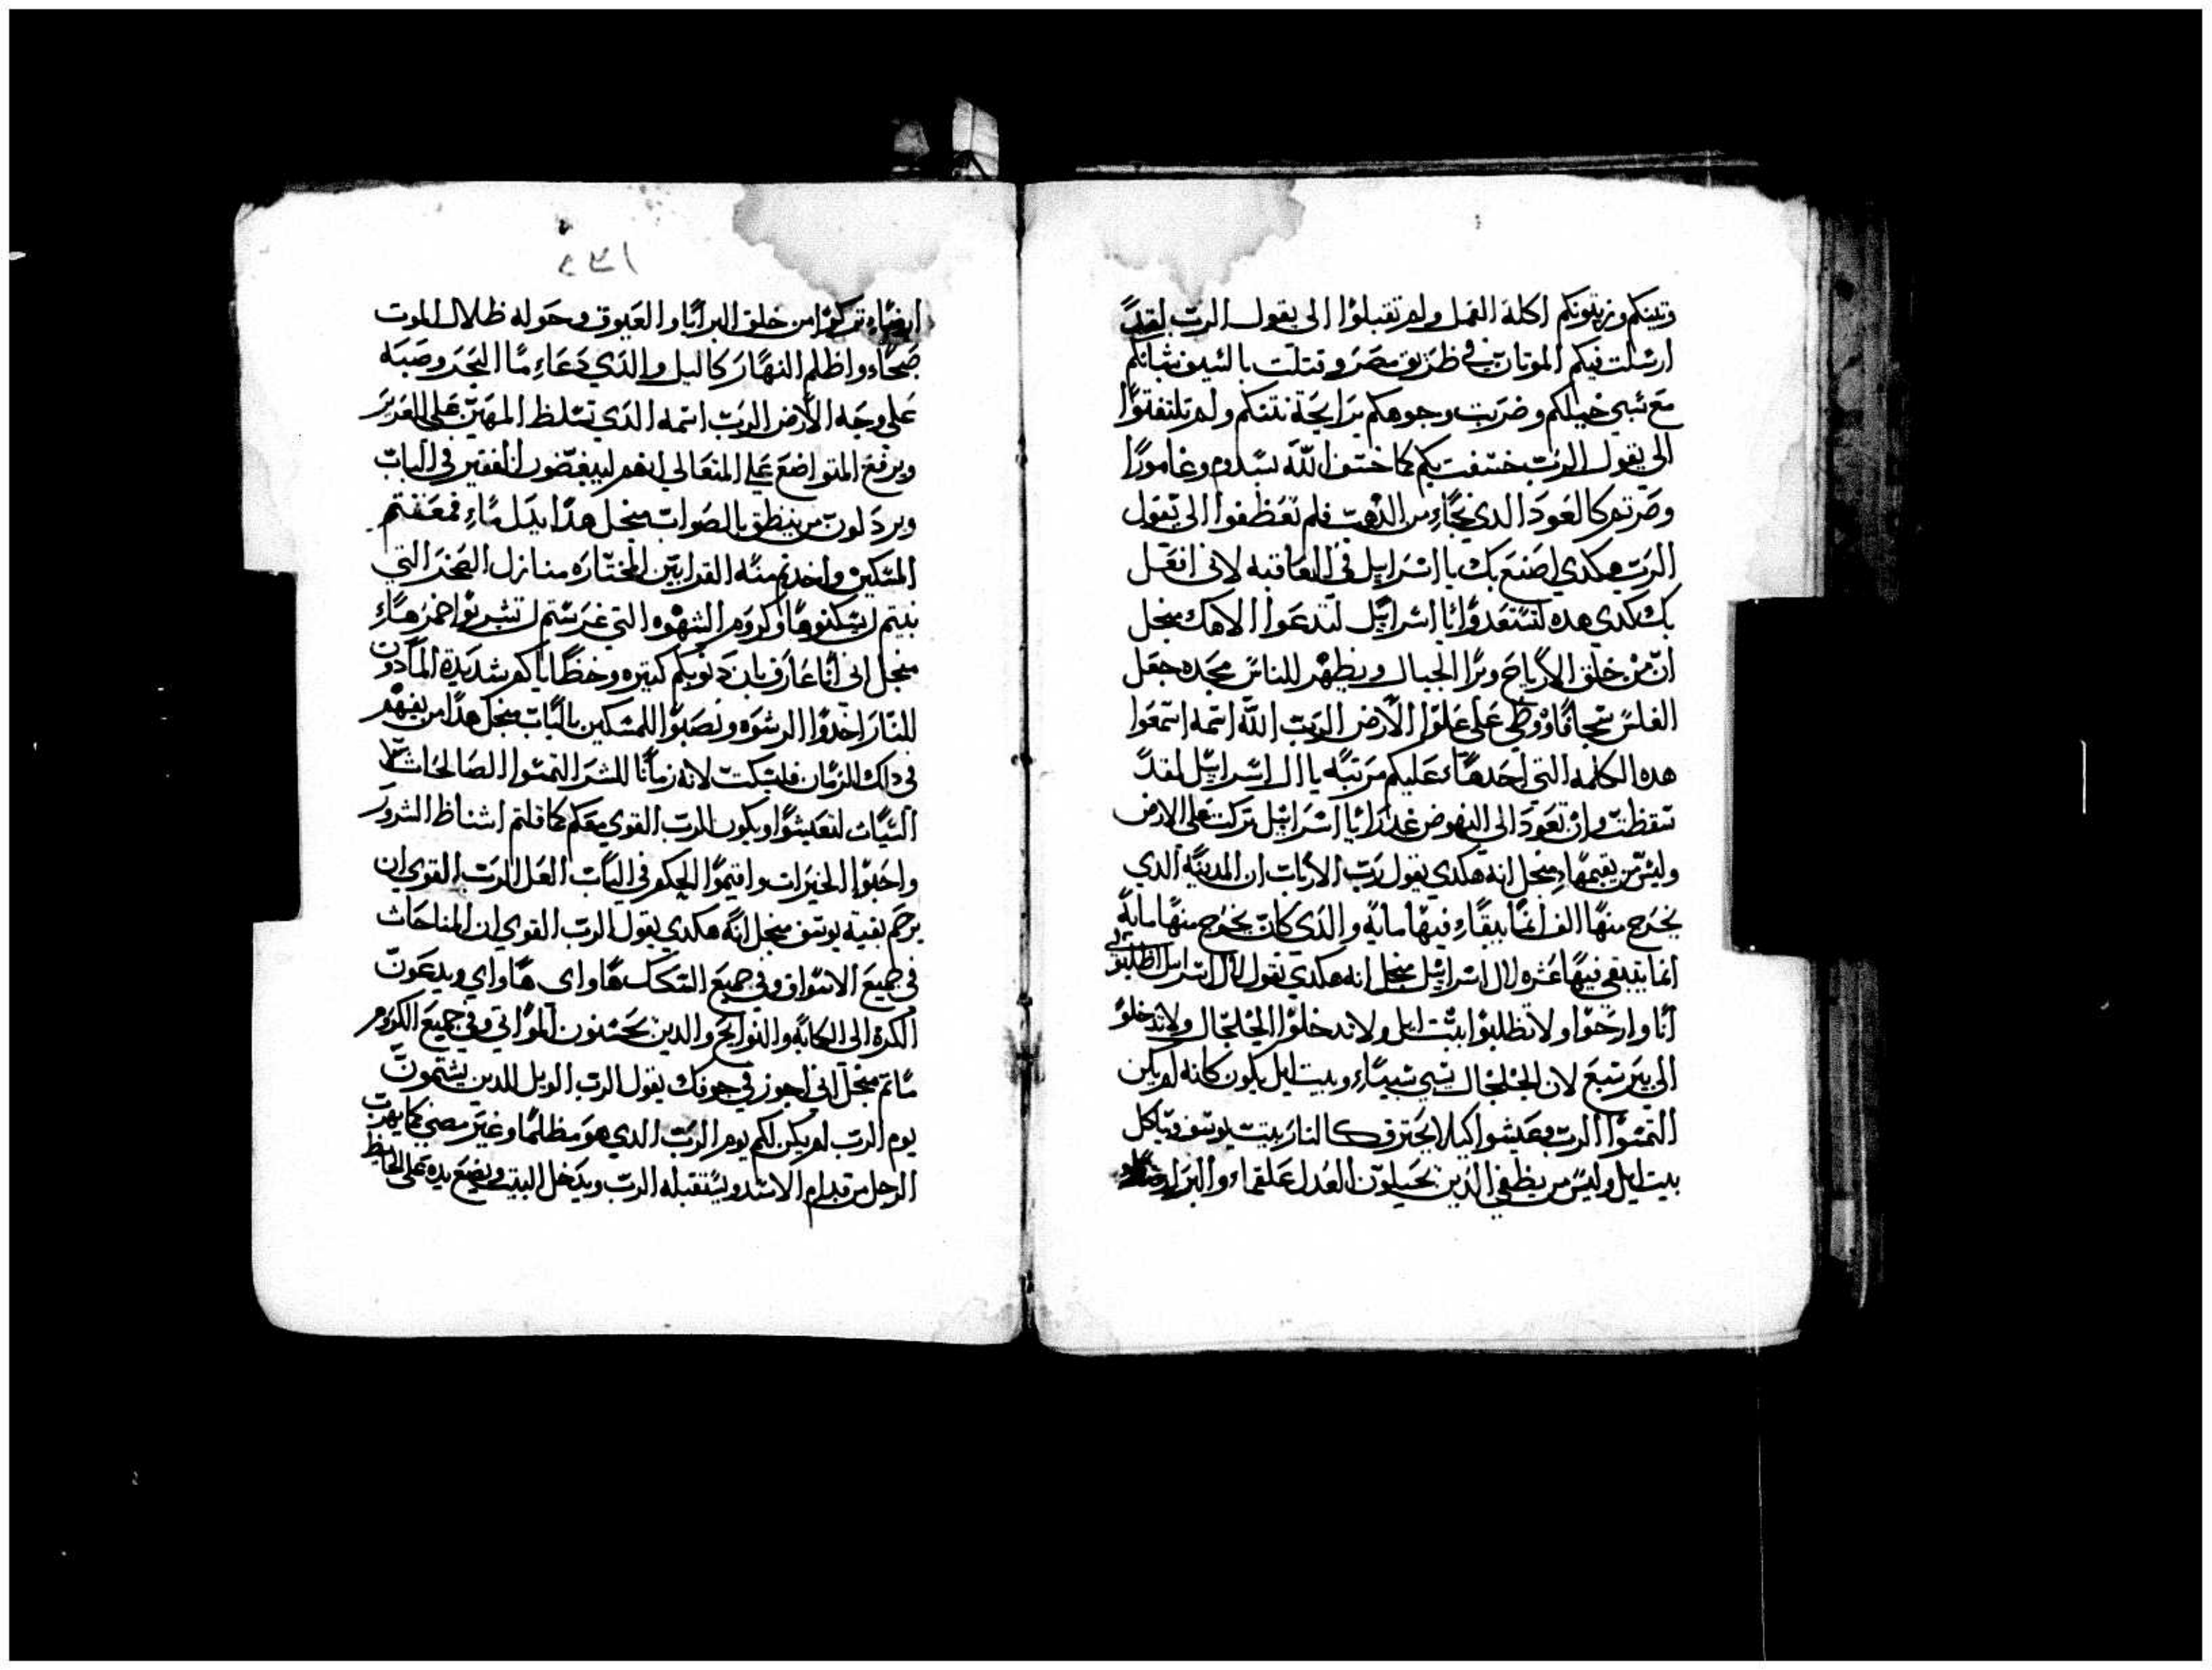 وتينكم وزيتونكم اكله القمل ولم تقبلوا الى يقول الرب لقد
ارسلت فيكم الموتان في طريق مصر وقتلت بالسيف شبانكم
مع سبي خيلكم وضربت وجوهكم برايحة نتنكم ولم تلتفتوا
الي يقول الرب خسفت بكم كما خسف الله بسدوم وغامورا
وصرتم كالعود الدي نجاء من اللهب فلم تعطفوا الي يقول
الرب هكدي اصنع بك يا اسرائيل في العاقبه لاني افعل
بك هكدي هده لتستعدوا يا اسرائيل لتدعوا الاهك منجل
ان من خلق الارياح وبرا الجبال ويظهر للناس مجده جعل
الغلس سحاقا ووطي علي علوا الارض الرب الله اسمه اسمعوا
هده الكلمه التي اخدها عليكم مرتبه يا ال اسرائيل لقد
سقطت وان تعود الى النهوض عدرا يا اسرائيل تركت علي الارض
وليس من يقيمها منجل انه هكدي يقول رب الارباب ان المدينه الدي
يخرج منها الف انما يبقاء فيها مايه والدي كان يخرج منها مايه
انما يتبقي فيها عشره لال اسرائيل منجل انه هكدي يقول لال اسرايل اطلبوني
انا وارحوا ولا تطلبوا بيت ايل ولا تدخلوا الجلجال ولا تدخلوا
الى بير سبع لان الجلجال تسبي سبياء وبيت ايل يكون كانه لم يكن
التمسوا الرب وعيشوا كيلا يحترق كالنار بيت يوسف وتاكل
بيت ايل وليس من يطفي الدين يحيلون العدل علقما والبر
ارضاء تركوا من خلق البرايا والعيوق وحوله ظلال الموت
صبحاء واظلم النهار كاليل والدي دعاء ما البحر وصبه
علي وجه الارض الرب اسمه الدي تسلط المهين علي العزيز
ويرفع المتواضع علي المتعالي انهم ليبغضون الفقير في الباب
ويردلون من ينطق بالصواب منجل هدا بدل ماء قمعتم
المسكين واخدتم منه القرابين المختاره منازل الصخر التي
بنيتم لتسكنوها وكروم الشهوه التي غرستم لتشربوا خمرهاء
منجل اني انا عارف بان دنوبكم كتيره وخطاياكم شديدة المادون
للنار اخدوا الرشوه ونصبوا للمسكين بالباب منجل هدا من يفهم
في دالك الزمان فليسكت لانه زمانا للشر التمسوا الصالحات لا
السيات لتعيشوا ويكون الرب القوي معكم كما قلتم اشناط الشرور
واحبوا الخيرات واقيموا الحكم في الباب العل الرب القوي ان
يرحم بقية يوسف منجل انه هكدي يقول الرب القوي ان المناحات
في جميع الاسواق وفي جميع السكك هاواي هاواي ويدعون
الكره الى الكابه والنوايح والدين يحسنون المراتي وفي جميع الكروم
ماتم منجل اني اجوز في جوفك يقول الرب الويل للدين يشتهون
يوم الرب لم يكن لكم يوم الرب الدي هو مظلما وغير مضي كما يهرب
الرجل من قدام الاسد ويستقبله الدب ويدخل البيت ويضع يده علي الحايط